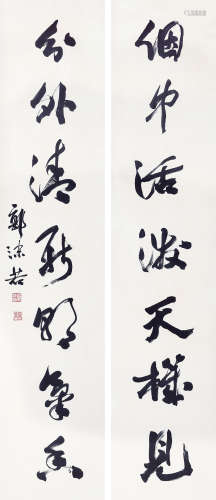 個中活潑天機見
分外清新明氣含
郭沫若